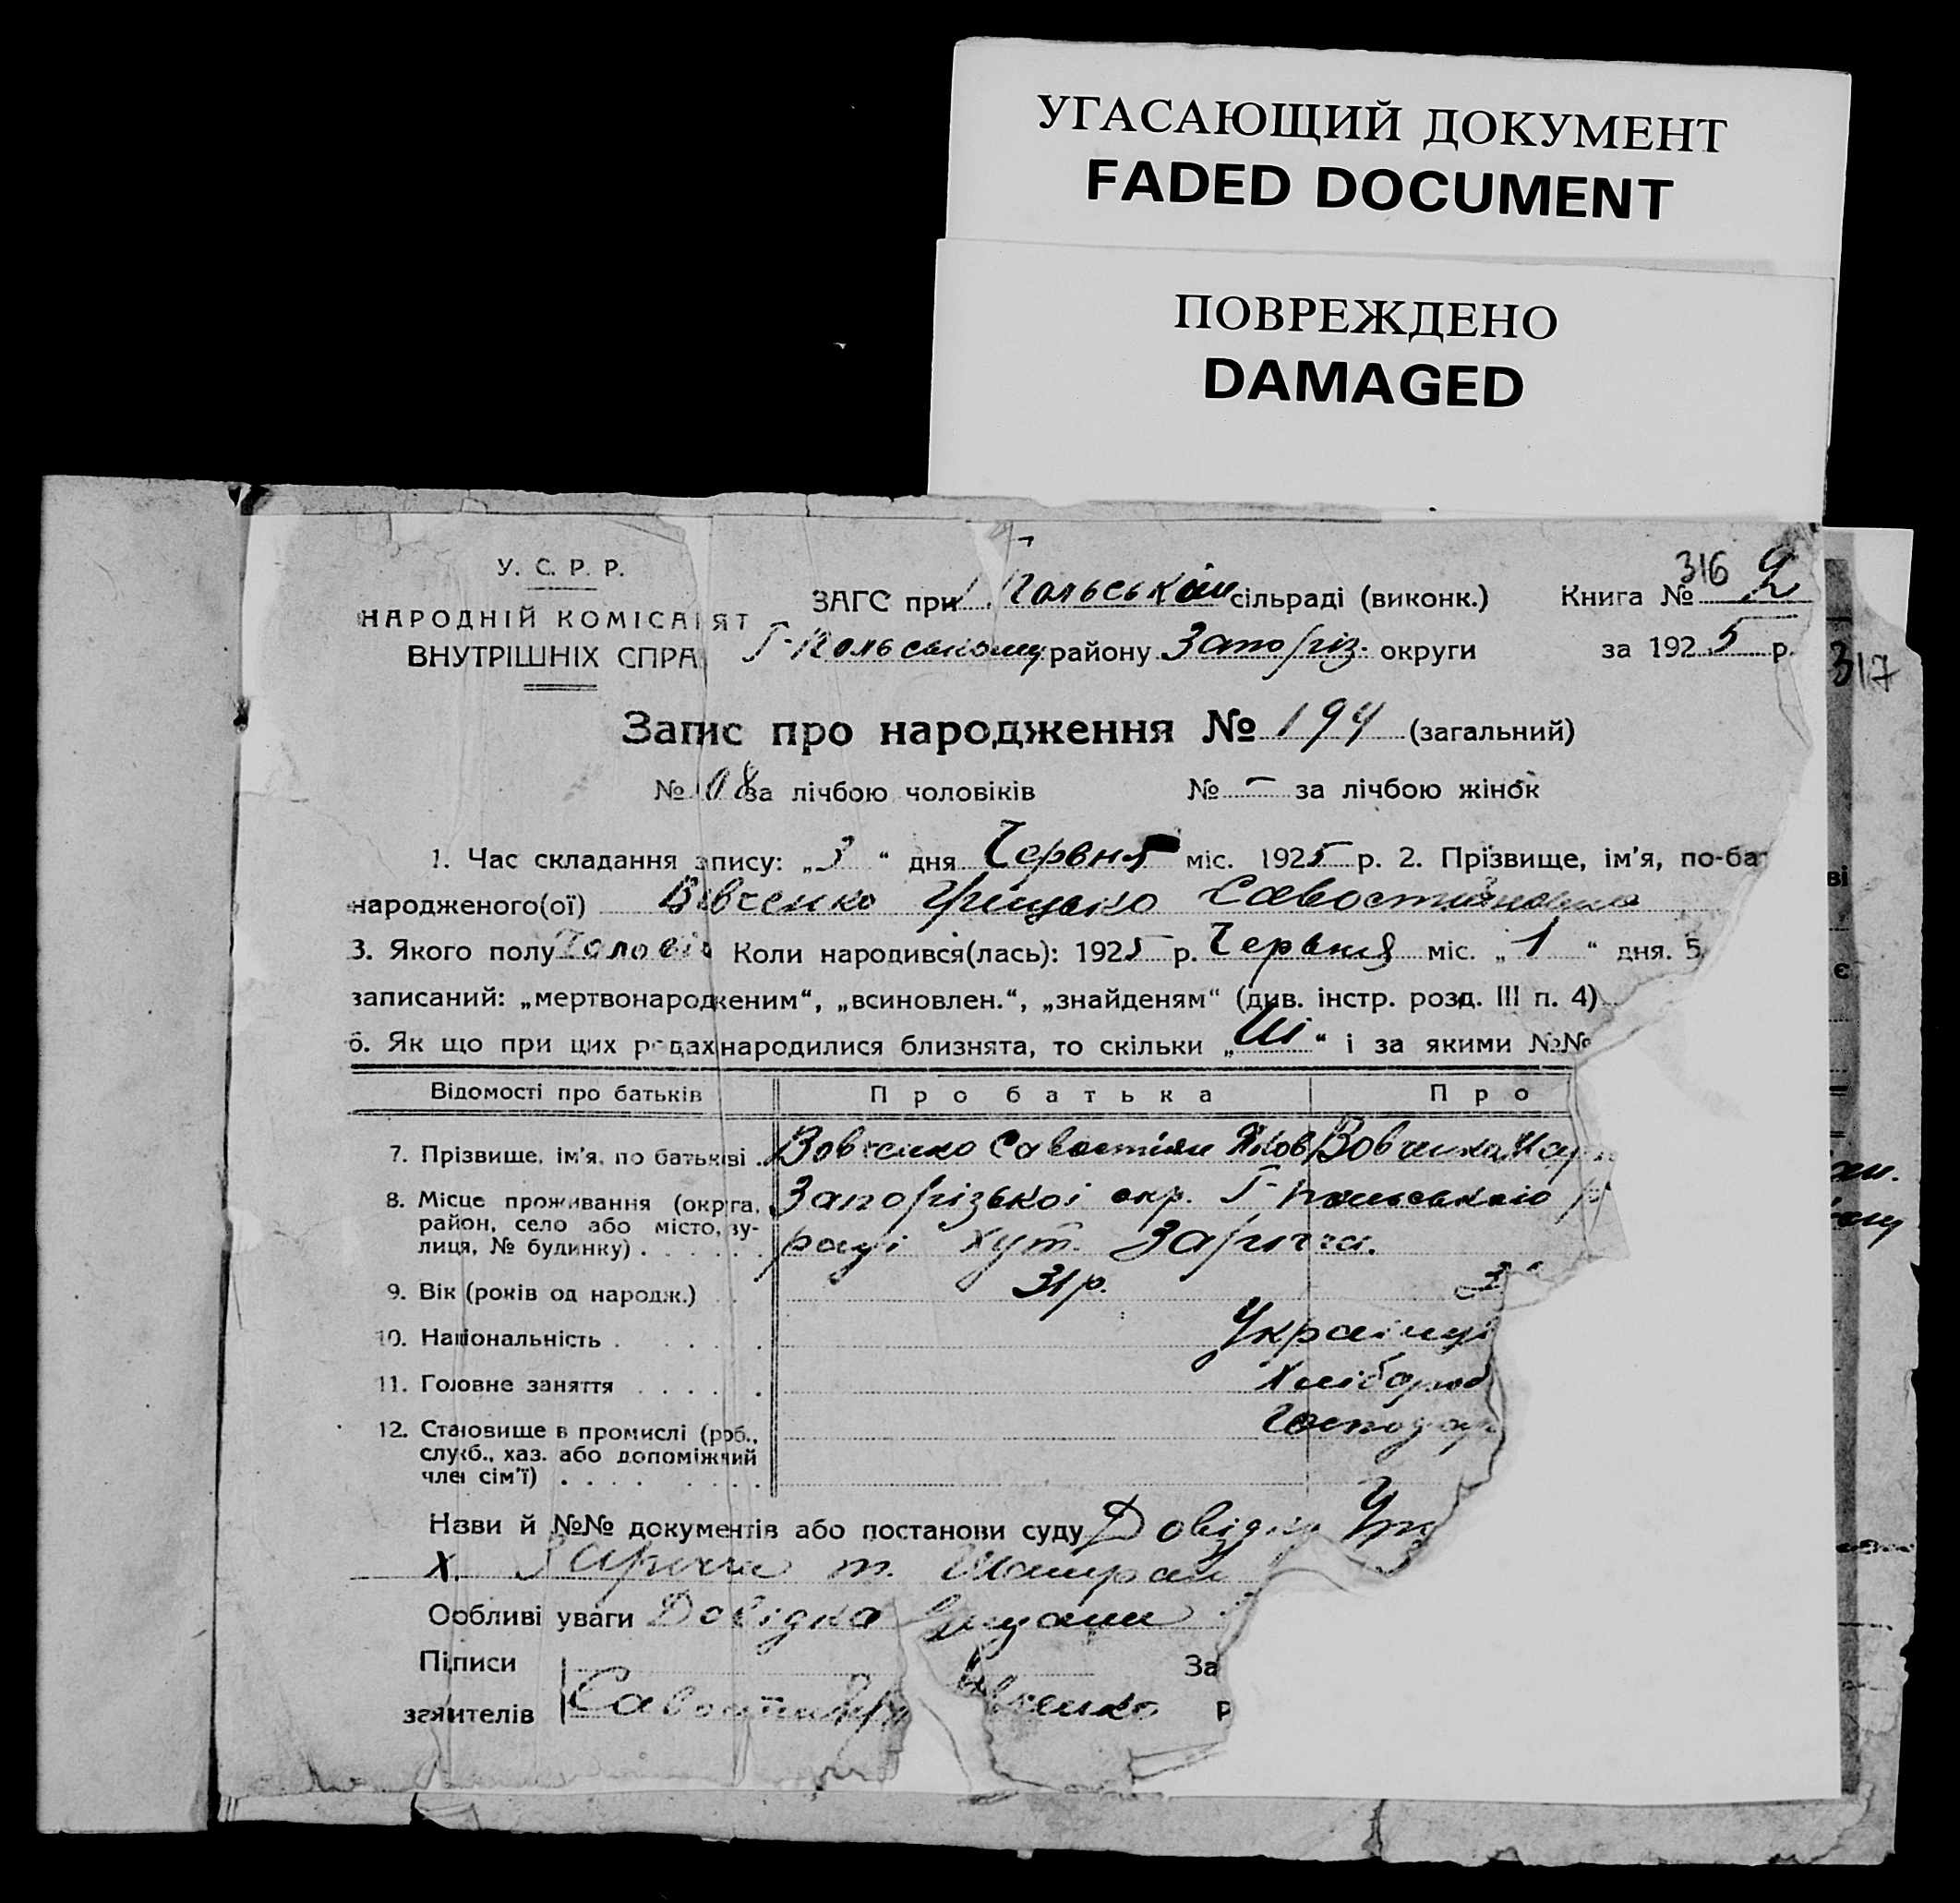 УГАСАЮЩИЙ ДОКУМЕНТ
FADED DOCUMENT
ПОВРЕЖДЕНО
DAMAGED
У. С. Р. Р.
НАРОДНІЙ КОМІСАРІЯТ
ВНУТРІШНІХ СПРА
316
ЗАГС при сільраді (виконк.) Книга № 2
Г-Польському району Запоріз. округи за 1925 р.
317
Запис про народження № 194 (загальний)
№ 108 за лічбою чоловіків № – за лічбою жінок
1. Час складання запису: „3“ дня Червня міс. 1925 р. 2. Прізвище, ім'я, по-ба
народженого(ої) Вовченко Грицько
3. Якого полу Чоловік Коли народився(лась): 1925 р. Червня міс. „1“ дня. 5
записаний: „мертвонародженим“, „всиновлен.“, „знайденям“ (див. інстр. розд. III п. 4)
6. Як що при цих родах народилися близнята, то скільки „Ні“ і за якими №№
Відомості про батьків Про батька Про
7. Прізвище, ім'я, по батькові Вовченко Савостіян Яков Вовченко Мар
8. Місце проживання (округа, Запорізької окр. Г-польського р
район, село або місто, ву-
лиця, № будинку) ради хут. Заріччя.
9. Вік (років од народж.) 31 р. 3
10. Національність Украінці
11. Головне заняття Хлібороб
12. Становище в промислі (роб., Господар
служб., хаз. або допоміжний
член сім'ї)
Назви й №№ документів або постанови суду Довідка
х. Заріччя
Особливі уваги Довідка
Підписи За
заявителів Р